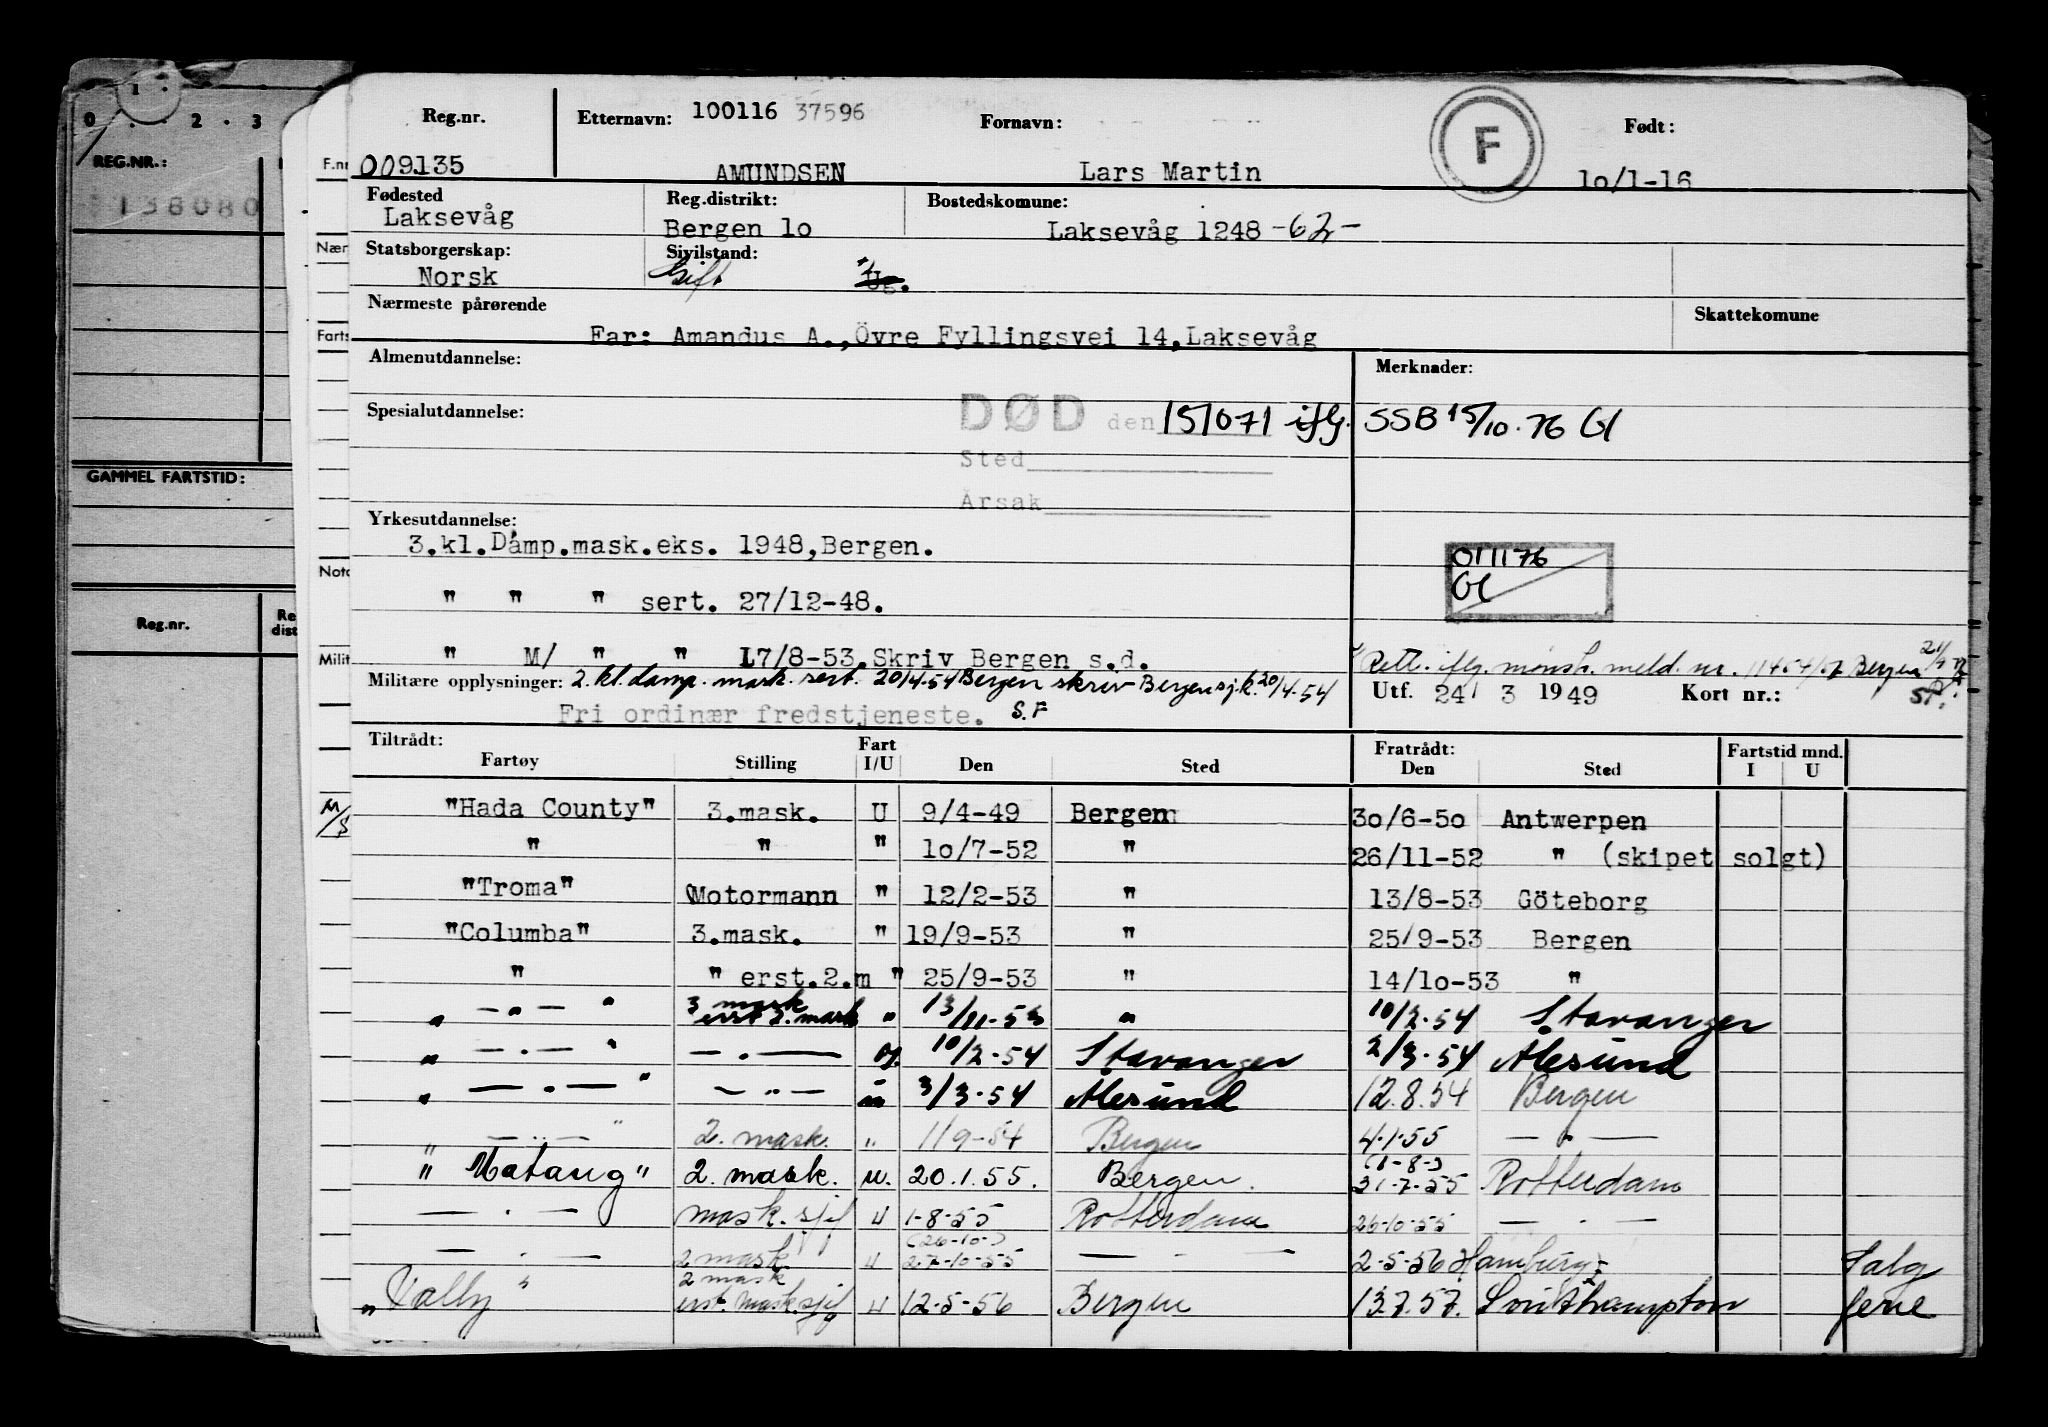 0 . 1 . 2 . 3
REG.NR.:
138080
GAMMEL FARTSTID:
Reg.nr.
Re
dist
F.nr
Nær
Farts
Noto
Milit
Reg.nr. Etternavn: 100116 37596 Fornavn: F Født:
009135 AMUNDSEN Lars Martin 10/1-16
Fødested Reg.distrikt: Bostedskomune:
Laksevåg Bergen 10 Laksevåg 1248 -62-
Statsborgerskap: Sivilstand:
Norsk Gift Ug.
Nærmeste pårørende Skattekomune
Far: Amandus A.,Övre Fyllingsvei 14,Laksevåg
Almenutdannelse: Merknader:
Spesialutdannelse: DØD den 151071 iflg. SSB 15/10-76 Gl
Sted
Årsak
Yrkesutdannelse:
3.kl.Damp.mask.eks. 1948,Bergen.
011176
Gl
" " " sert. 27/12-48.
" M/ " " 17/8-53.Skriv Bergen s.d.
Rett. iflg. mønstr. meld. nr. Bergen
Militære opplysninger: 2. kl. damp. mask. sert. 20/4-54 Bergen skriv Bergen sj.k. 20/4-54
Utf. 24 3 1949 Kort nr.:
Fri ordinær fredstjeneste. S.F
Tiltrådt: Fart Fratrådt: Fartstid mnd.
Fartøy Stilling I/U Den Sted Den Sted I U
M/S "Hada County" 3.mask. U 9/4-49 Bergen 30/6-50 Antwerpen
" " " 10/7-52 " 26/11-52 " (skipet solgt)
"Troma" Motormann " 12/2-53 " 13/8-53 Göteborg
"Columba" 3.mask. " 19/9-53 " 25/9-53 Bergen
" " erst.2.m " 25/9-53 " 14/10-53 "
" — " — " 3 mask erst 2. mask " 13/11-53 " 10/2-54 Stavanger
" — . — " — . — 10/2-54 Stavanger 2/3-54 Ålesund
" — . — " — " — u 3/3-54 Ålesund 12.8.54 Bergen
" — .. — " 2. mask. " 1/9-54 Bergen 4.1.55 — " —
" Matang " 2. mask. u. 20.1.55. Bergen. (1-8-) 31-7-55 Rotterdam
— . — mask. sjef u 1-8-55 Rotterdam 26-10-55 — . —
— . — 2 mask u (26-10-) 27-10-55 — . — 2-5-56 Hamburg Salg
" Valby " 2 mask erst. mask. sjef u 12-5-56 Bergen 13.7.57. Southampton ferie